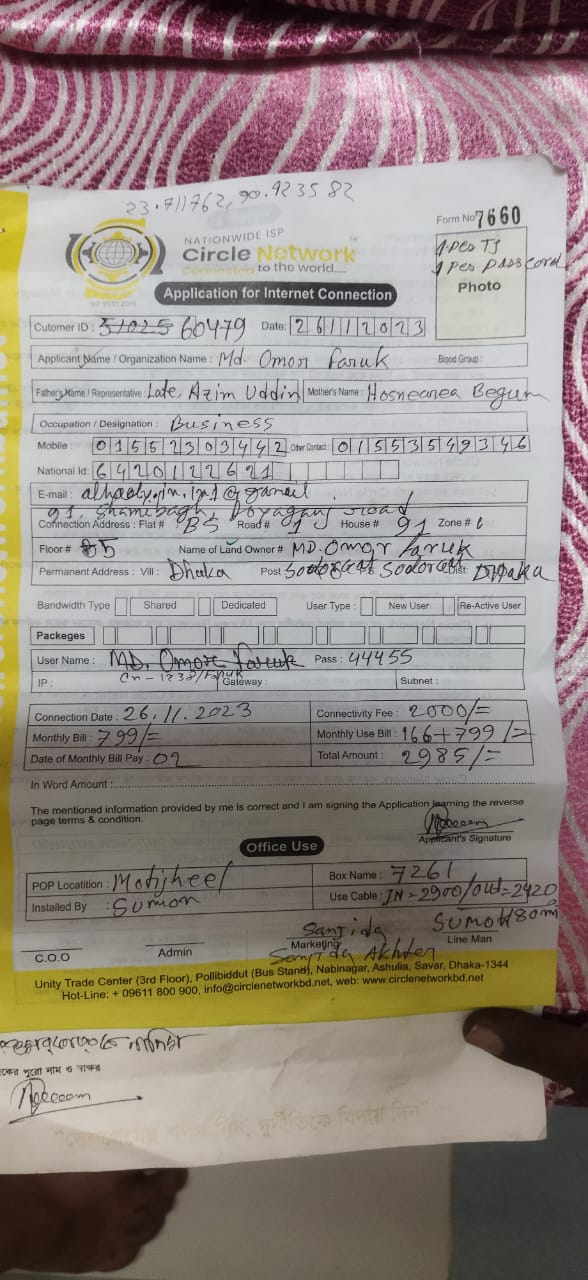 23.711762, 90.423582
Form No 7660
NATIONWIDE ISP
Circle Network
Connected to the world.....
ISO 9001:2015
1 Pes TJ
1 Pes pass cord
Photo
Application for Internet Connection
Cutomer ID : 51025 60479 Date: 26112023
Applicant Name / Organization Name : Md. Omor Faruk Blood Group :
Father's Name / Representative : Late, Azim Uddin Mother's Name : Hosneanea Begum
Occupation / Designation : Business
Mobile : 01552303442 Other Contact : 01553549346
National Id: 6420122621
E-mail :
91, Shamibagh, Doyaganj Road
Connection Address : Flat # B5 Road # 1 House # 91 Zone # 6
Floor # 5 Name of Land Owner # MD. Omar Faruk
Permanent Address : Vill : Dhaka Post : Dist: Dhaka
Bandwidth Type Shared Dedicated User Type : New User Re-Active User
Packeges
User Name : Md. Omor Faruk Pass : 44455
cn-1238/Faruk
IP : Gateway : Subnet :
Connection Date : 26.11.2023 Connectivity Fee : 2000/=
Monthly Bill : 799/= Monthly Use Bill : 166+799/=
Date of Monthly Bill Pay : 09 Total Amount : 2985/=
In Word Amount :
The mentioned information provided by me is correct and I am signing the Application learning the reverse
page terms & condition.
Applicant's Signature
Office Use
POP Locatition : Motijheel Box Name : 7261
Installed By : Sumon Use Cable : IN-2900/Out=2420
Sanjida
C.O.O Admin Marketing Line Man
Sanjida Akhter
Unity Trade Center (3rd Floor), Pollibiddut (Bus Stand), Nabinagar, Ashulia, Savar, Dhaka-1344
Hot-Line: + 09611 800 900, info@circlenetworkbd.net, web: www.circlenetworkbd.net
কের পুরো নাম ও স্বাক্ষর
দুর্নীতিকে বিদায় দিন"